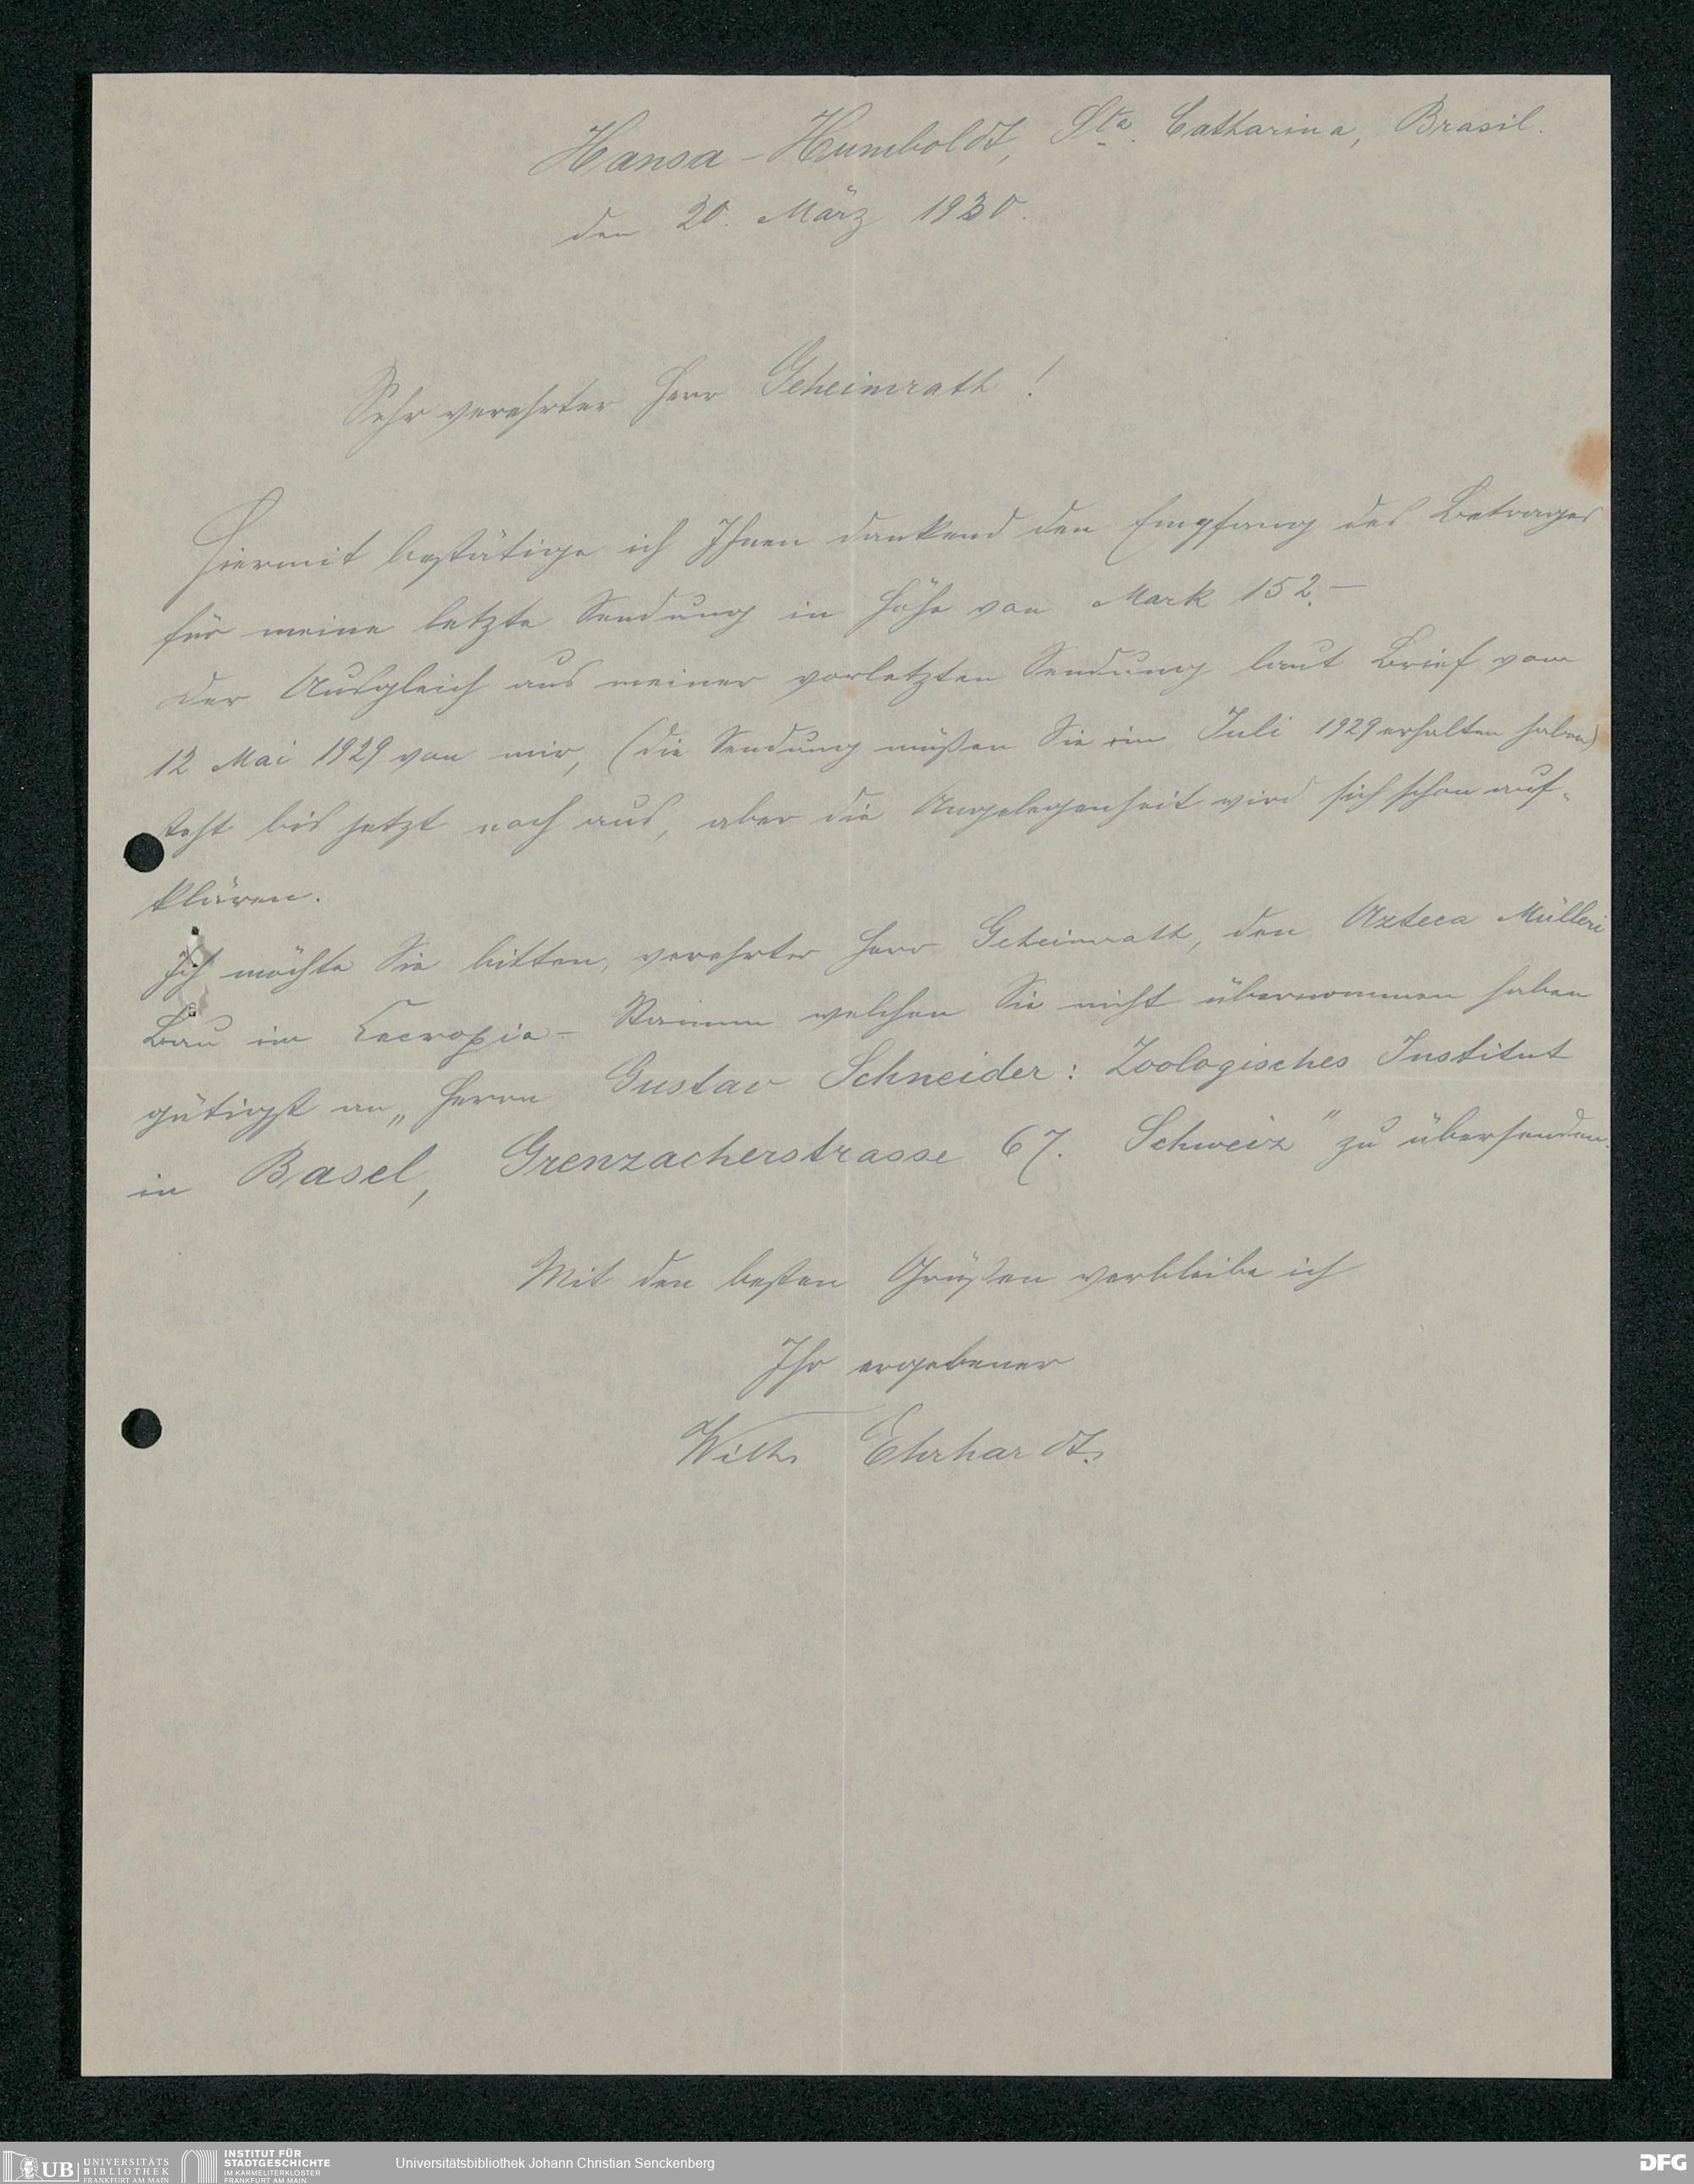 Hansa-Humboldt, Sta. Catharina, Brasil.
den 20. März 1930.
Sehr verehrter Herr Geheimrath!
Hiermit bestätige ich Ihnen dankend den Empfang des Betrages
für meine letzte Sendung in Höhe von Mark 152.—
Der Ausgleich aus meiner vorletzten Sendung laut Brief vom
12 Mai 1929 von mir, (die Sendung müßen Sie im Juli 1929 erhalten haben)
steht bis jetzt noch aus, aber die Angelegenheit wird sich schon auf-
klären.
Ich möchte Sie bitten, verehrter Herr Geheimrath, den Azteca Mülleri
Bau im Cecropia-Stamm welchen Sie nicht übernommen haben
gütigst an „Herrn Gustav Schneider: Zoologisches Institut
in Basel, Grenzacherstrasse 67. Schweiz" zu übersenden.
Mit den besten Grüßen verbleibe ich
Ihr ergebener
Wilh. Ehrhardt.
UB UNIVERSITÄTS BIBLIOTHEK FRANKFURT AM MAIN
INSTITUT FÜR STADTGESCHICHTE IM KARMELITERKLOSTER FRANKFURT AM MAIN
Universitätsbibliothek Johann Christian Senckenberg
DFG